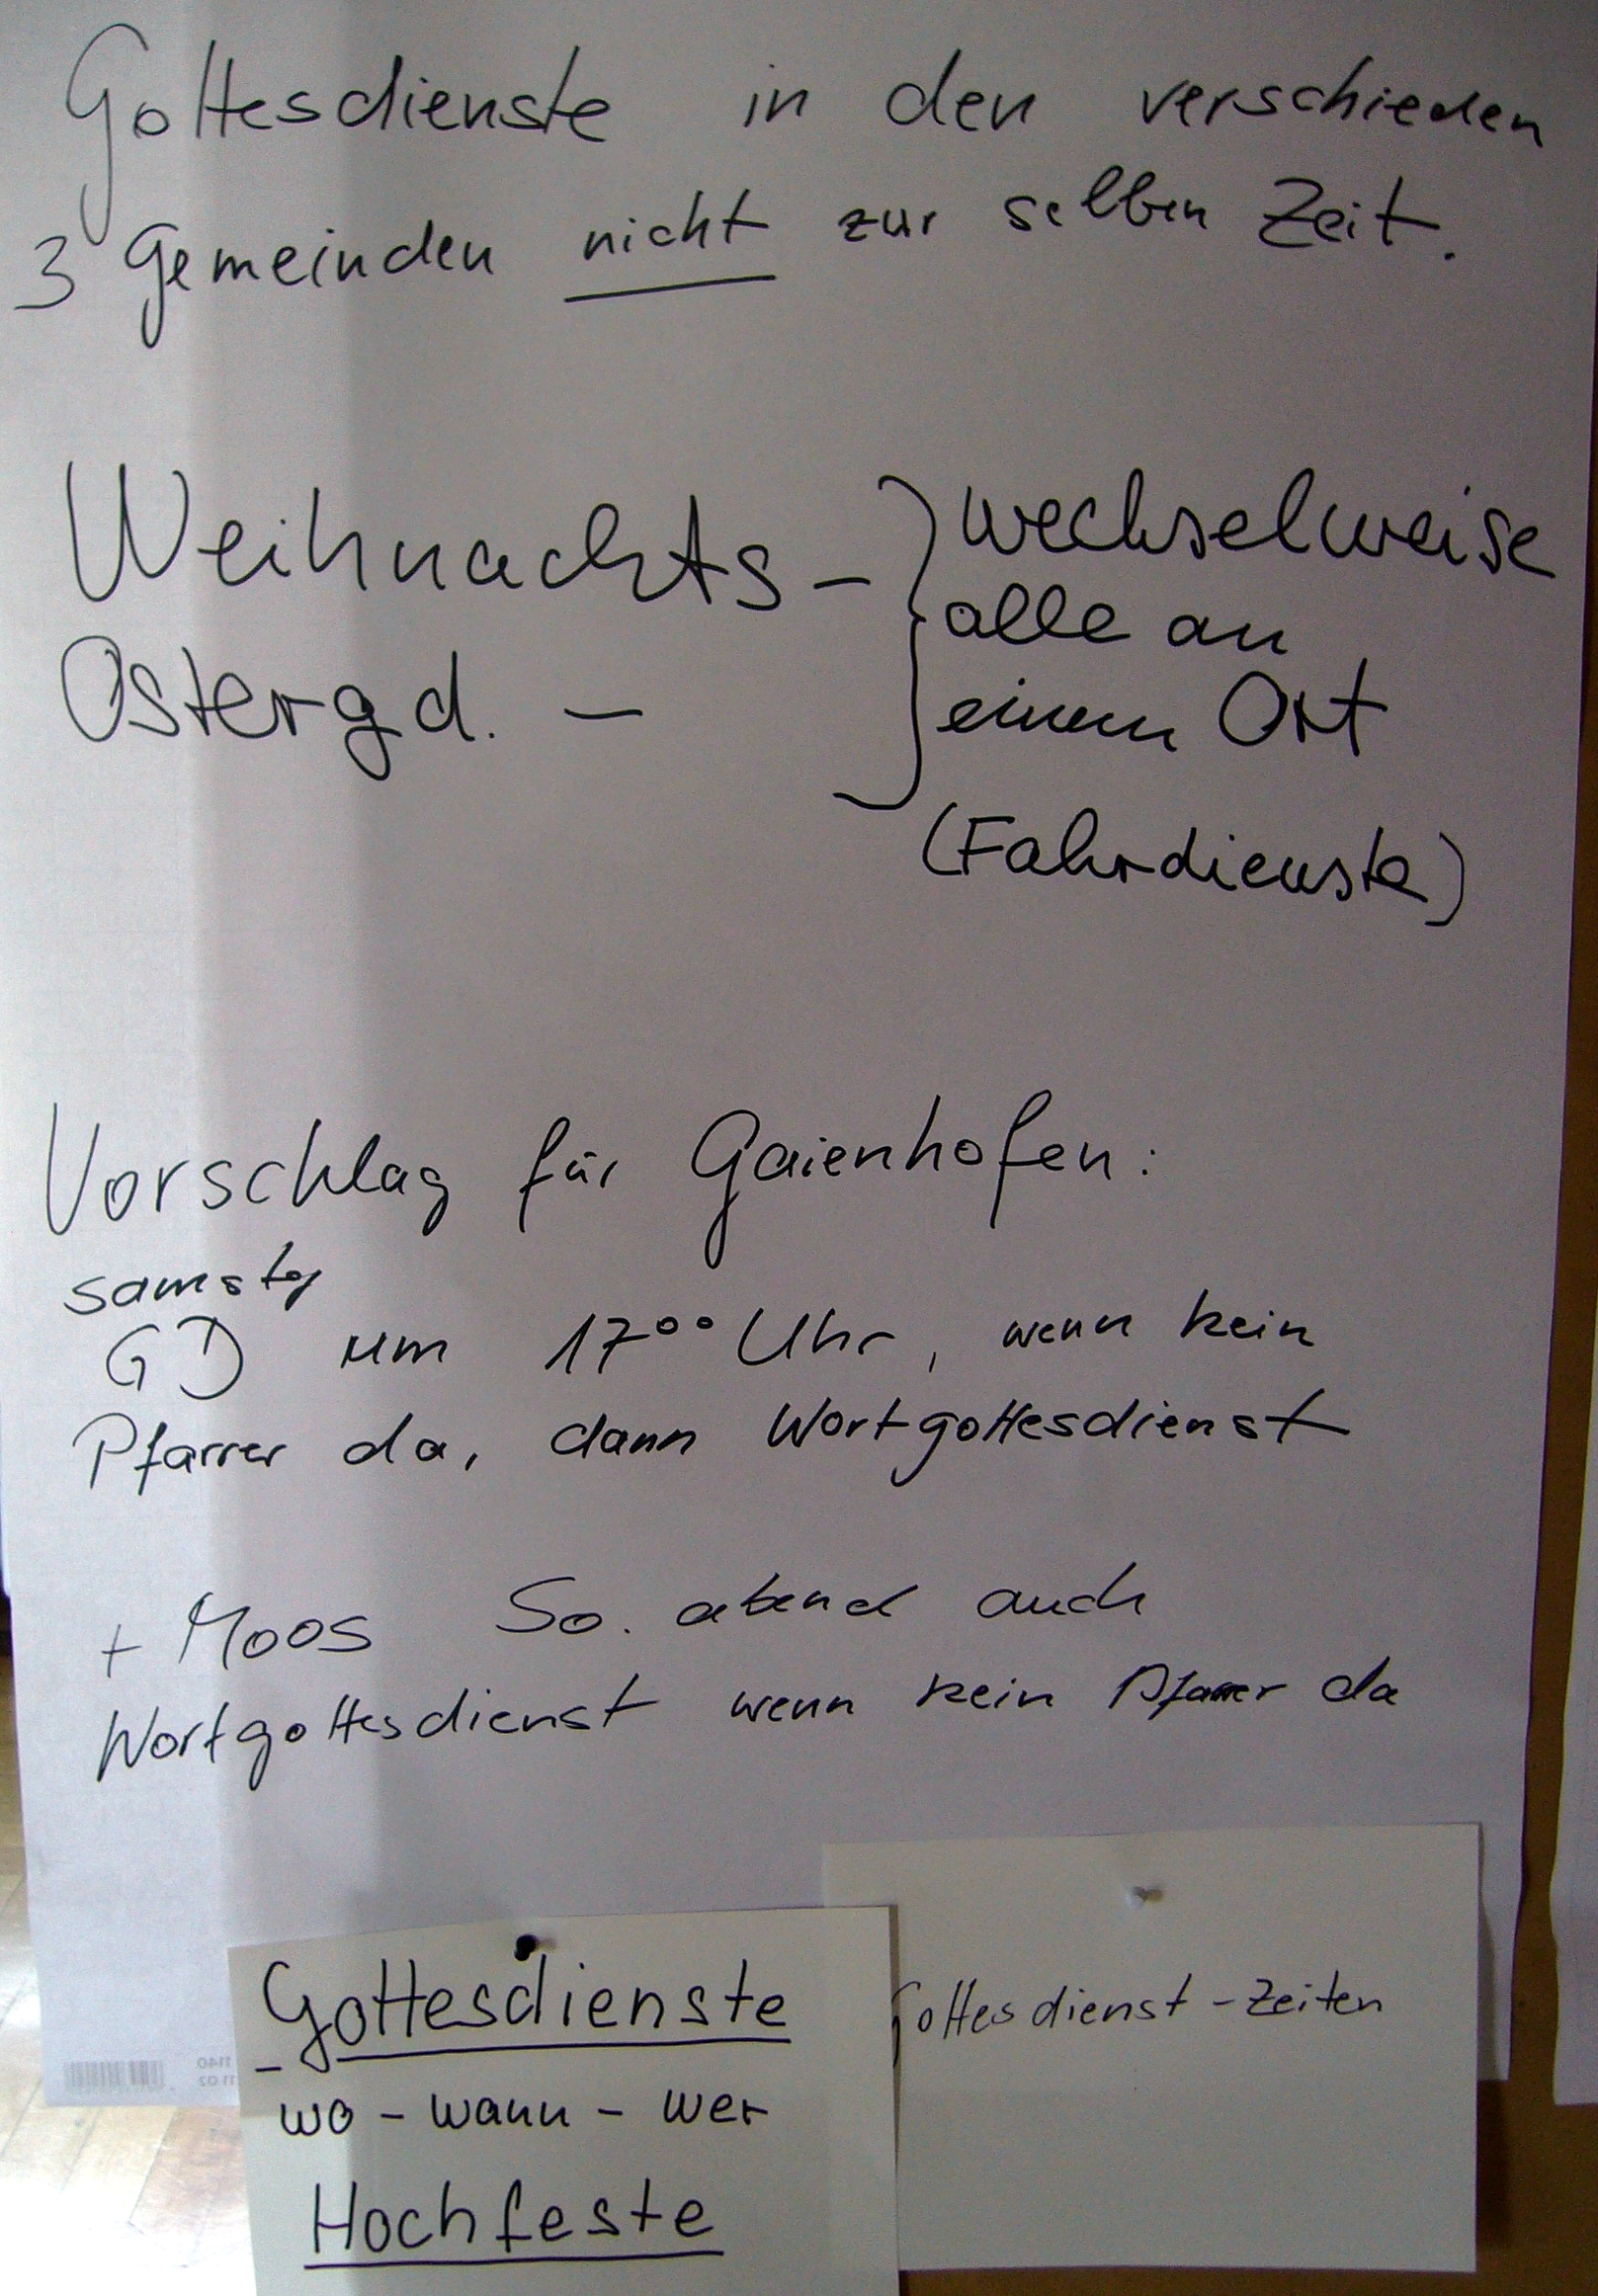 Gottesdienste in den verschieden
3 Gemeinden nicht zur selben Zeit.
Weihnachts -
Ostergd. -
wechselweise
alle an
einem Ort
(Fahrdienste)
Vorschlag für Gaienhofen:
samstag
GD um 17°° Uhr, wenn kein
Pfarrer da, dann Wortgottesdienst
+ Moos So. abend auch
Wortgottesdienst wenn kein Pfarrer da
Gottesdienste
- wo - wann - wer
Hochfeste
Gottesdienst - Zeiten